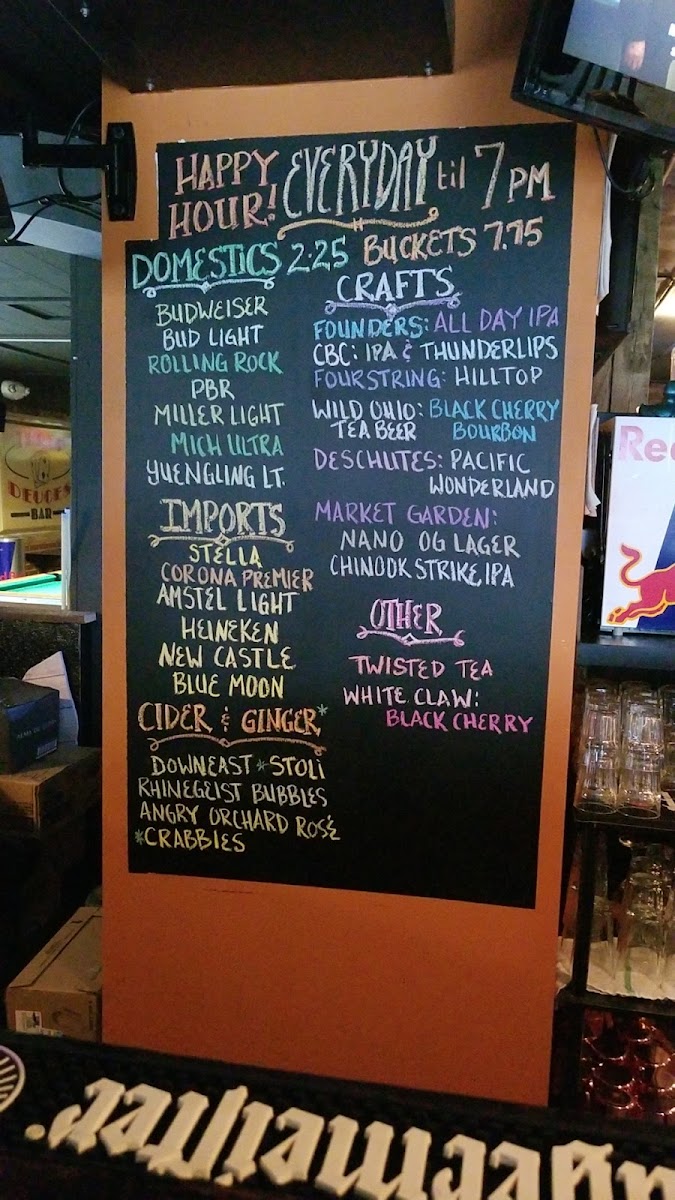 HAPPY HOUR! EVERYDAY til 7 PM
DOMESTICS 2.25 BUCKETS 7.75
BUDWEISER
BUD LIGHT
ROLLING ROCK
PBR
MILLER LIGHT
MICH ULTRA
YUENGLING LT.
IMPORTS
STELLA
CORONA PREMIER
AMSTEL LIGHT
HEINEKEN
NEW CASTLE
BLUE MOON
CIDER & GINGER*
DOWNEAST *STOLI
RHINEGEIST BUBBLES
ANGRY ORCHARD ROSÉ
*CRABBIES
CRAFTS
FOUNDERS: ALL DAY IPA
CBC: IPA & THUNDERLIPS
FOURSTRING: HILLTOP
WILD OHIO: BLACK CHERRY
TEA BEER BOURBON
DESCHUTES: PACIFIC
WONDERLAND
MARKET GARDEN:
NANO OG LAGER
CHINOOK STRIKE, IPA
OTHER
TWISTED TEA
WHITE CLAW:
BLACK CHERRY
DEUCES
BAR
Red
Jägermeister